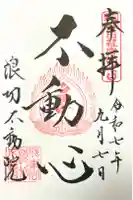 奉拝
令和七年
九月七日
不動心
浪切不動院